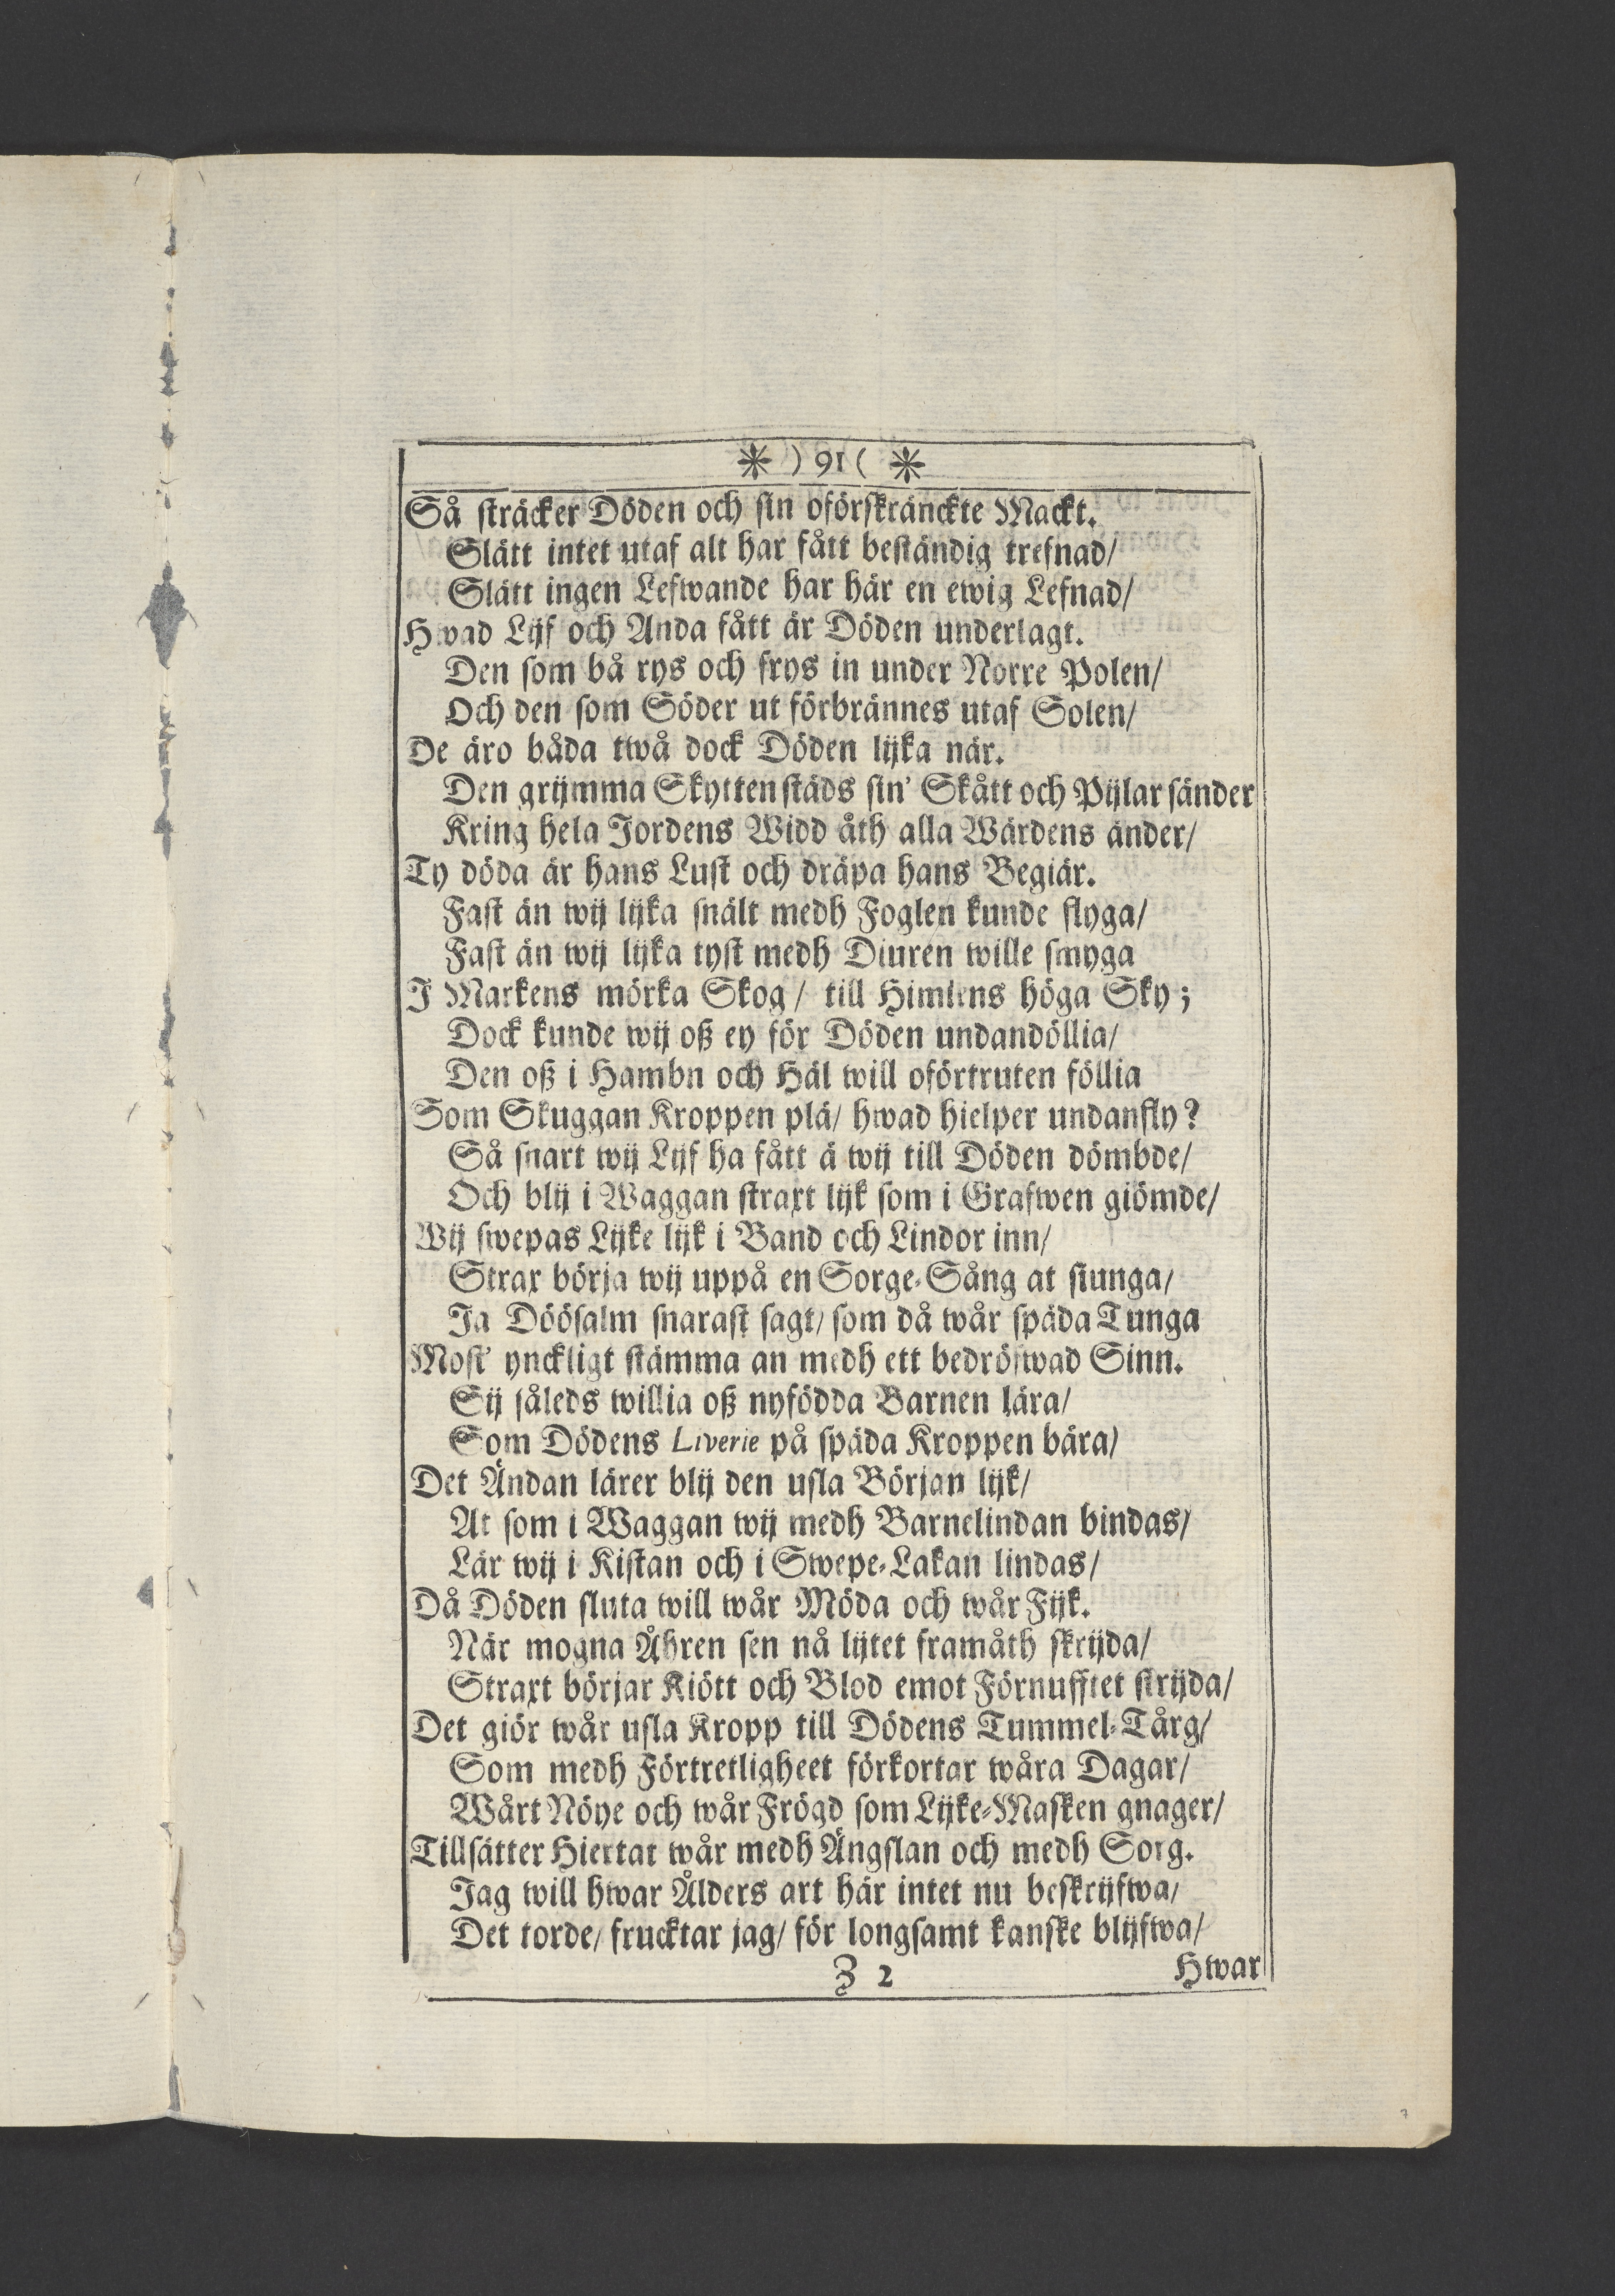 * ) 91 ( *
Så sträcker Döden och sin oförskränckte Mackt.
Slätt intet utaf alt har fått beständig trefnad/
Slätt ingen Lefwande har här en ewig Lefnad/
Hwad Lijf och Anda fått är Döden underlagt.
Den som bå rys och frys in under Norre Polen/
Och den som Söder ut förbrännes utaf Solen/
De äro båda twå dock Döden lijka när.
Den grijmma Skytten städs sin' Skått och Pijlar sänder
Kring hela Jordens Widd åth alla Wärdens änder/
Ty döda är hans Lust och dräpa hans Begiär.
Fast än wij lijka snält medh Foglen kunde flyga/
Fast än wij lijka tyst medh Diuren wille smyga
J Markens mörka Skog/ till Himlens höga Sky;
Dock kunde wij oß ey för Döden undandöllia/
Den oß i Hambn och Häl will oförtruten föllia
Som Skuggan Kroppen plä/ hwad hielper undanfly?
Så snart wij Lijf ha fått ä wij till Döden dömbde/
Och blij i Waggan straxt lijk som i Grafwen giömde/
Wij swepas Lijke lijk i Band och Lindor inn/
Strax börja wij uppå en Sorge-Sång at siunga/
Ja Döösalm snarast sagt/ som då wår späda Tunga
Most' ynckligt stämma an medh ett bedröfwad Sinn.
Sij såleds willia oß nyfödda Barnen lära/
Som Dödens Liverie på späda Kroppen bära/
Det Ändan lärer blij den usla Början lijk/
At som i Waggan wij medh Barnelindan bindas/
Lär wij i Kistan och i Swepe-Lakan lindas/
Då Döden sluta will wår Möda och wår Fijk.
När mogna Åhren sen nå lijtet framåth skrijda/
Straxt börjar Kiött och Blod emot Förnufftet strijda/
Det giör wår usla Kropp till Dödens Tummel-Tårg/
Som medh Förtretligheet förkortar wåra Dagar/
Wårt Nöye och wår Frögd som Lijke-Masken gnager/
Tillsätter Hiertat wår medh Ängslan och medh Sorg.
Jag will hwar Ålders art här intet nu beskrijfwa/
Det torde/ frucktar jag/ för longsamt kanske blijfwa/
Z 2
Hwar
7